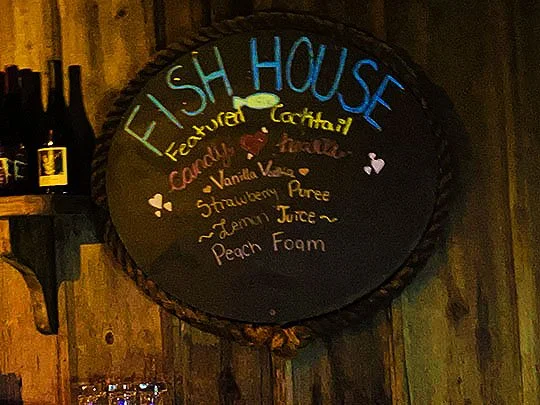 FISH HOUSE
Featured Cocktail
candy hearts
Vanilla Vodka
Strawberry Puree
~Lemon Juice~
Peach Foam